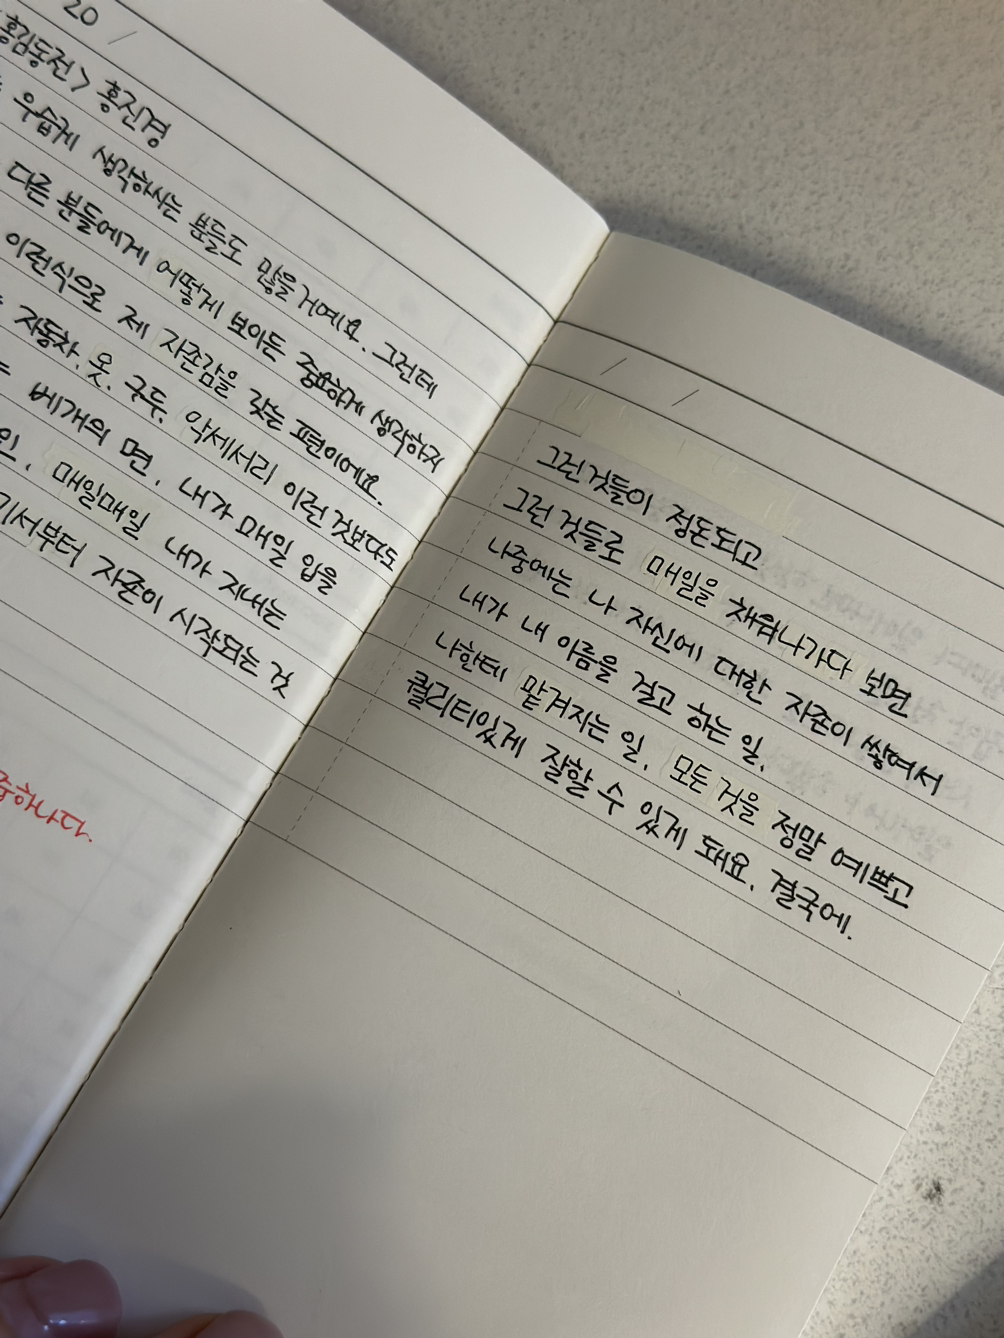 20 /
홍김동전> 홍진경
우습게 생각하시는 분들도 많을 거예요. 그런데
다른 분들에게 어떻게 보이든 중요하게 생각하지
이런식으로 제 자존감을 갖는 편이에요.
자동차, 옷, 구두, 악세서리 이런 것보다도
베개의 면, 내가 매일 입을
매일매일 내가 지내는
기서부터 자존이 시작되는 것
하나다.
/ /
그런것들이 정돈되고
그런 것들로 매일을 채워나가다 보면
나중에는 나 자신에 대한 자존이 쌓여서
내가 내 이름을 걸고 하는 일,
나한테 맡겨지는 일, 모든 것을 정말 예쁘고
퀄리티있게 잘할 수 있게 돼요. 결국에.